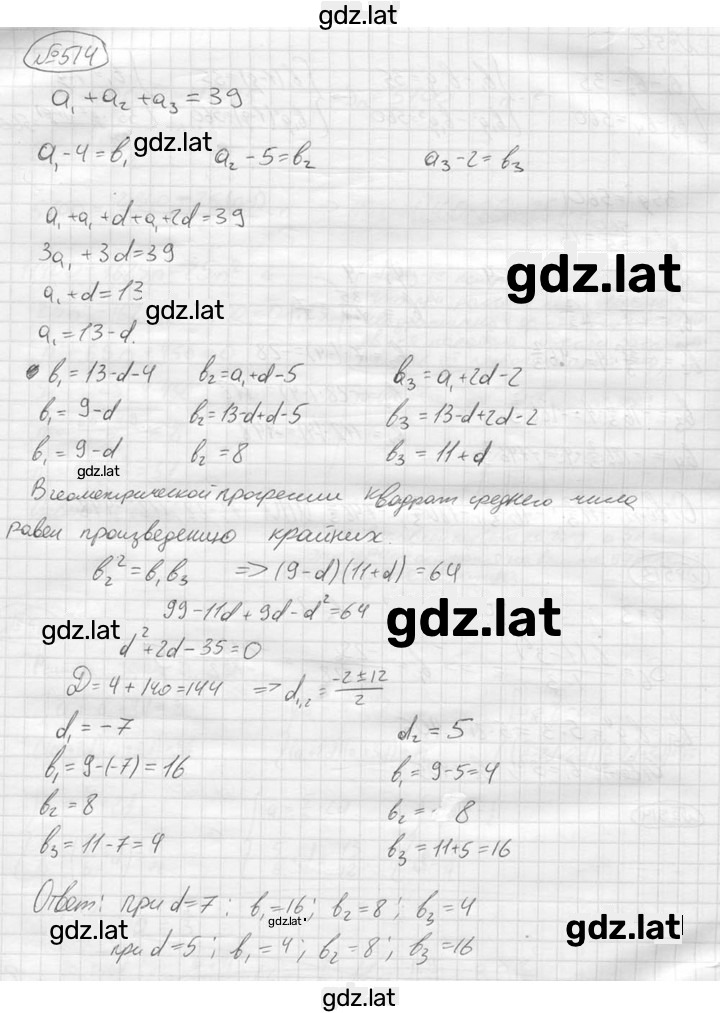 gdz.lat
№574
a₁ + a₂ + a₃ = 39
a₁ - 4 = b₁ gdz.lat a₂ - 5 = b₂ a₃ - 2 = b₃
a₁ + a₁ + d + a₁ + 2d = 39
3a₁ + 3d = 39
gdz.lat
a₁ + d = 13
gdz.lat
a₁ = 13 - d.
b₁ = 13 - d - 4 b₂ = a₁ + d - 5 b₃ = a₁ + 2d - 2
b₁ = 9 - d b₂ = 13 - d + d - 5 b₃ = 13 - d + 2d - 2
b₁ = 9 - d b₂ = 8 b₃ = 11 + d
gdz.lat
В геометрической прогрессии квадрат среднего числа
равен произведению крайних.
b₂² = b₁b₃ => (9 - d)(11 + d) = 64
99 - 11d + 9d - d² = 64
gdz.lat gdz.lat
d² + 2d - 35 = 0
D = 4 + 140 = 144 => d₁,₂ = (-2 ± 12)/2
d₁ = -7 d₂ = 5
b₁ = 9 - (-7) = 16 b₁ = 9 - 5 = 4
b₂ = 8 b₂ = 8
b₃ = 11 - 7 = 4 b₃ = 11 + 5 = 16
Ответ: при d = 7; b₁ = 16; b₂ = 8; b₃ = 4
gdz.lat gdz.lat gdz.lat
при d = 5; b₁ = 4; b₂ = 8; b₃ = 16
gdz.lat